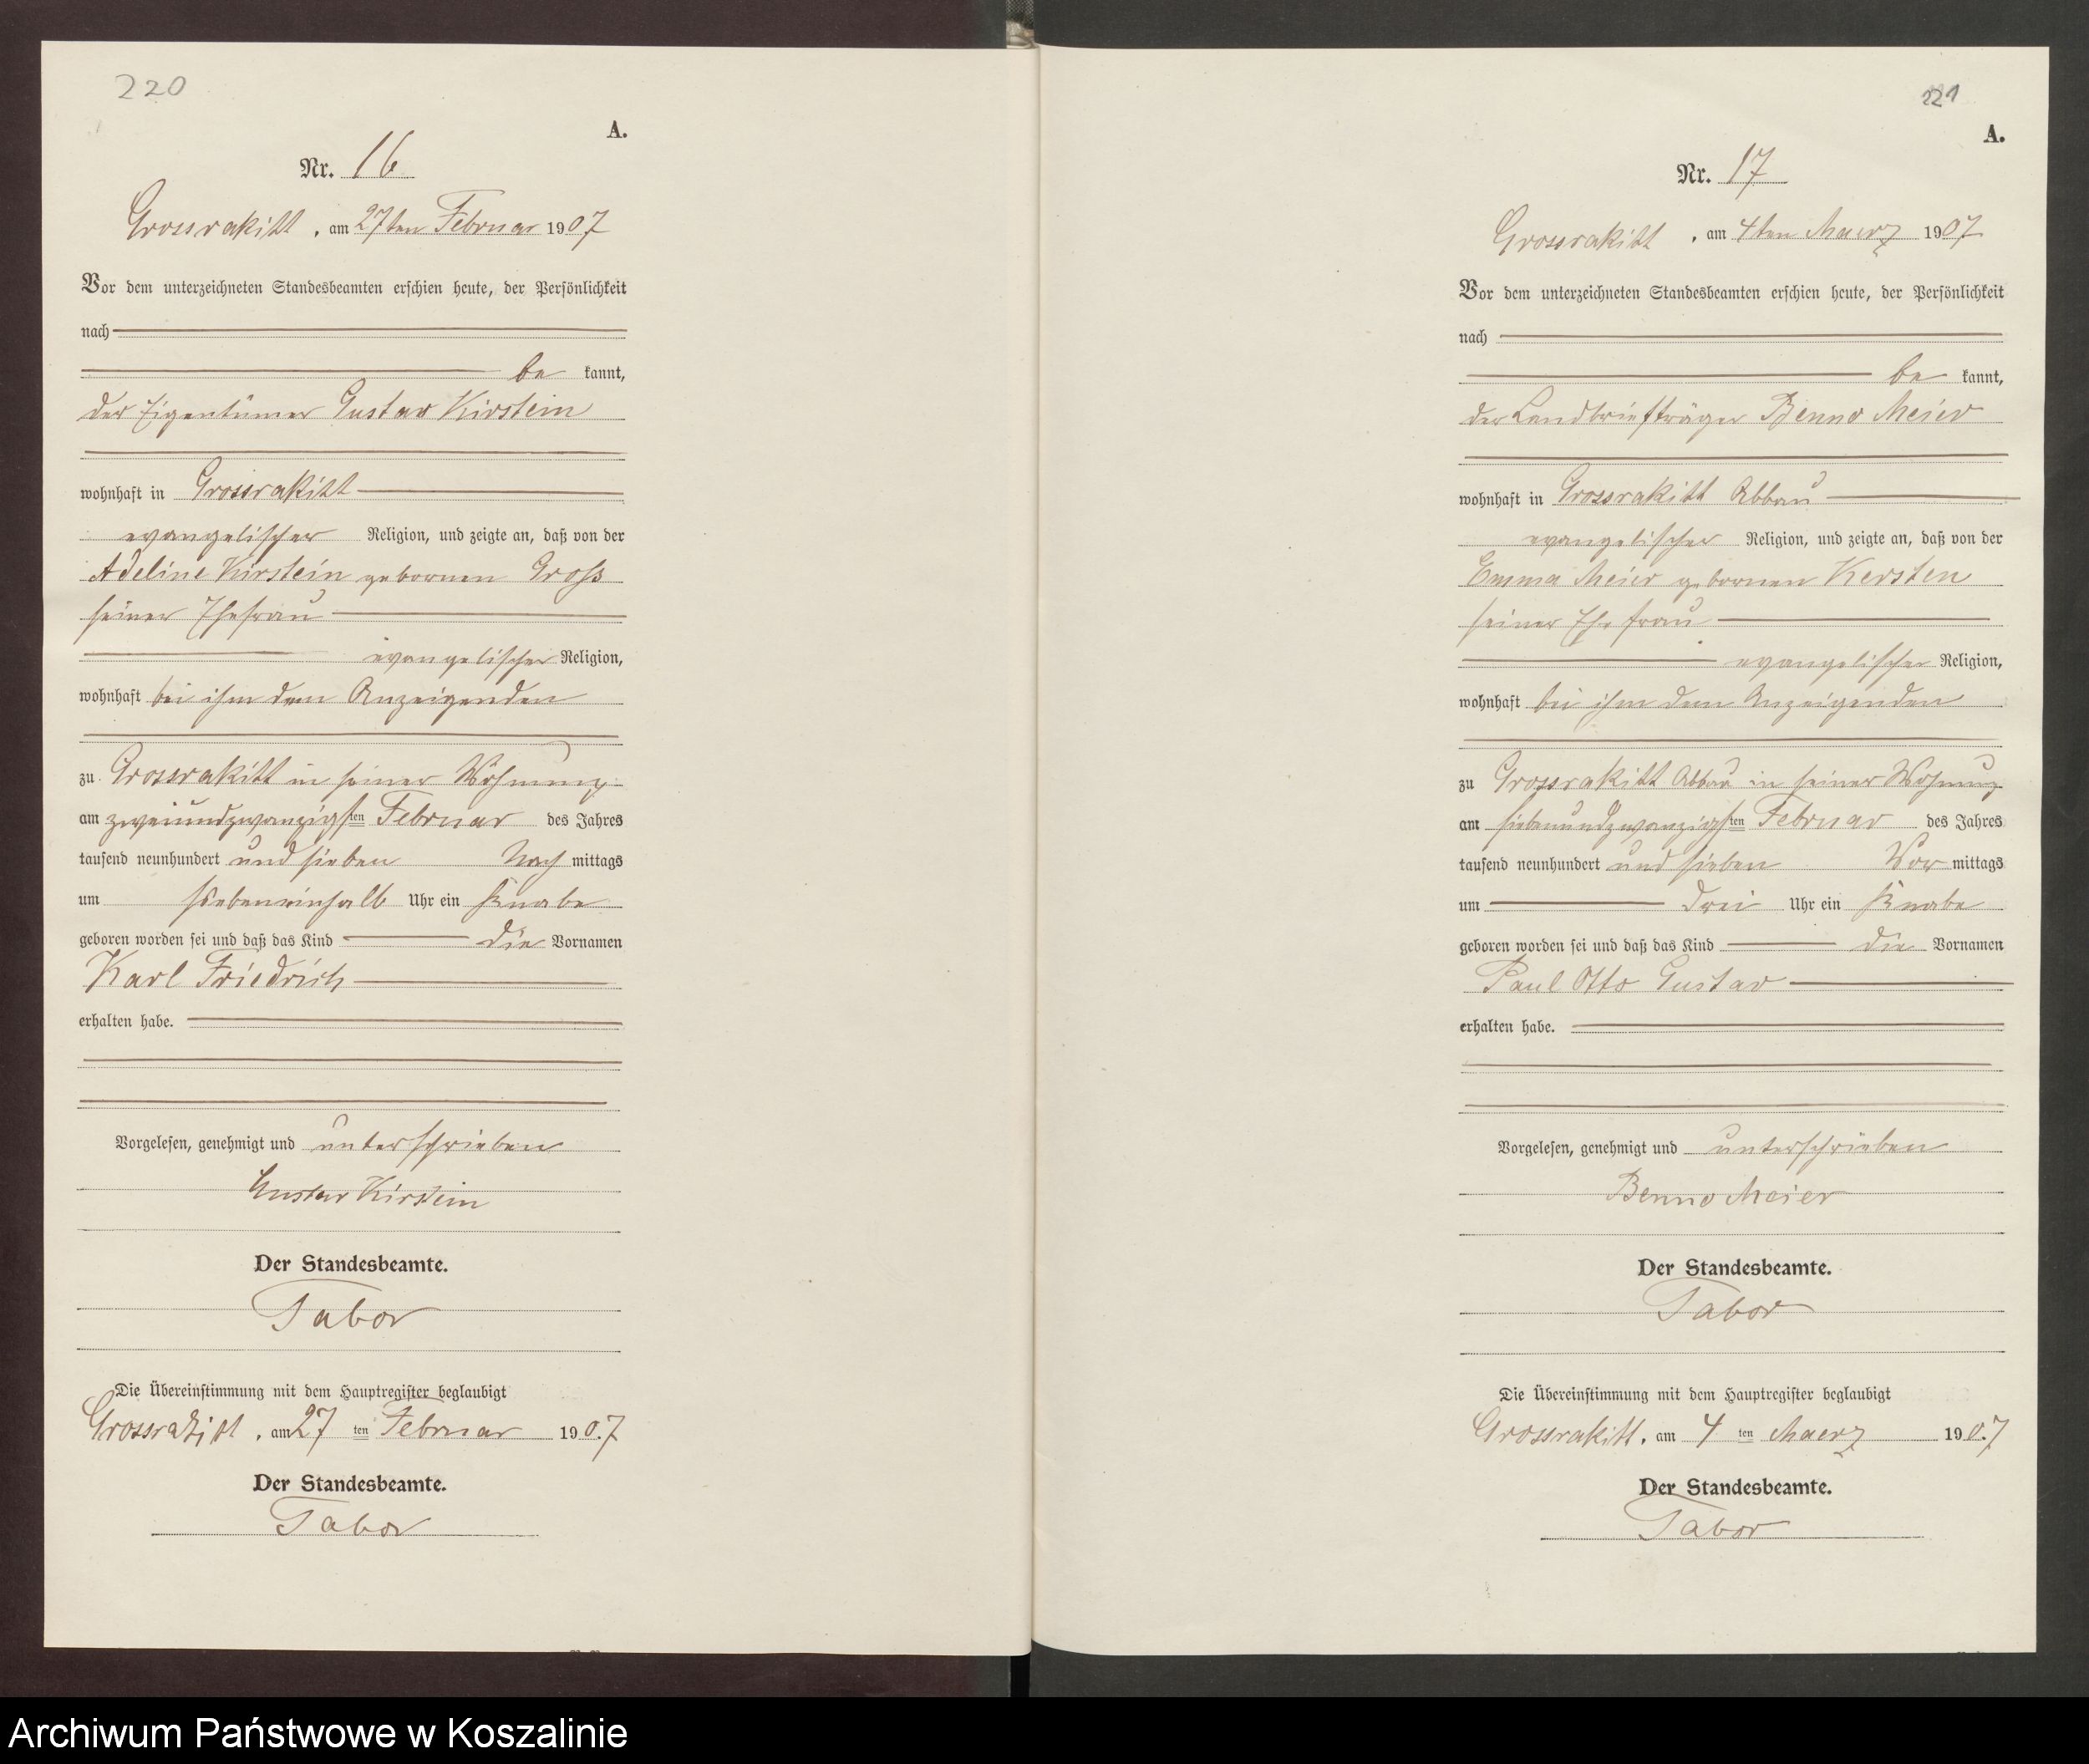 220
A.
Nr. 16
Grossrakitt, am 27ten Februar 1907
Vor dem unterzeichneten Standesbeamten erschien heute, der Persönlichkeit
nach
be kannt,
der Eigentümer Gustav Kirstein
wohnhaft in Grossrakitt
evangelischer Religion, und zeigte an, daß von der
Adeline Kirstein gebornen Groß
seiner Ehefrau
evangelischer Religion,
wohnhaft bei ihm dem Anzeigenden
zu Grossrakitt in seiner Wohnung
am zweiundzwanzigsten Februar des Jahres
tausend neunhundert und sieben Nach mittags
um siebeneinhalb Uhr ein Knabe
geboren worden sei und daß das Kind die Vornamen
Karl Friedrich
erhalten habe.
Vorgelesen, genehmigt und unterschrieben
Gustav Kirstein
Der Standesbeamte.
Tabor
Die Übereinstimmung mit dem Hauptregister beglaubigt
Grossrakitt, am 27 ten Februar 1907
Der Standesbeamte.
Tabor
221
A.
Nr. 17
Grossrakitt, am 4ten Maerz 1907
Vor dem unterzeichneten Standesbeamten erschien heute, der Persönlichkeit
nach
be kannt,
der Landbriefträger Benno Meier
wohnhaft in Grossrakitt Abbau
evangelischer Religion, und zeigte an, daß von der
Emma Meier gebornen Kersten
seiner Ehefrau
evangelischer Religion,
wohnhaft bei ihm dem Anzeigenden
zu Grossrakitt Abbau in seiner Wohnung
am siebenundzwanzigsten Februar des Jahres
tausend neunhundert und sieben Vor mittags
um drei Uhr ein Knabe
geboren worden sei und daß das Kind die Vornamen
Paul Otto Gustav
erhalten habe.
Vorgelesen, genehmigt und unterschrieben
Benno Meier
Der Standesbeamte.
Tabor
Die Übereinstimmung mit dem Hauptregister beglaubigt
Grossrakitt, am 4 ten Maerz 1907
Der Standesbeamte.
Tabor
Archiwum Państwowe w Koszalinie